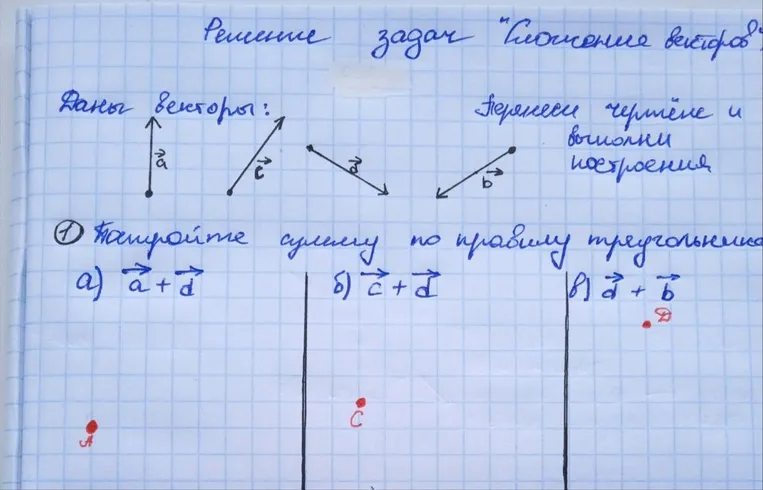 Решение задач "Сложение векторов"
Даны векторы:
Перенеси чертёж и
выполни
построения
a c d b
① Постройте сумму по правилу треугольника
а) a + d б) c + d в) d + b
D
C
A